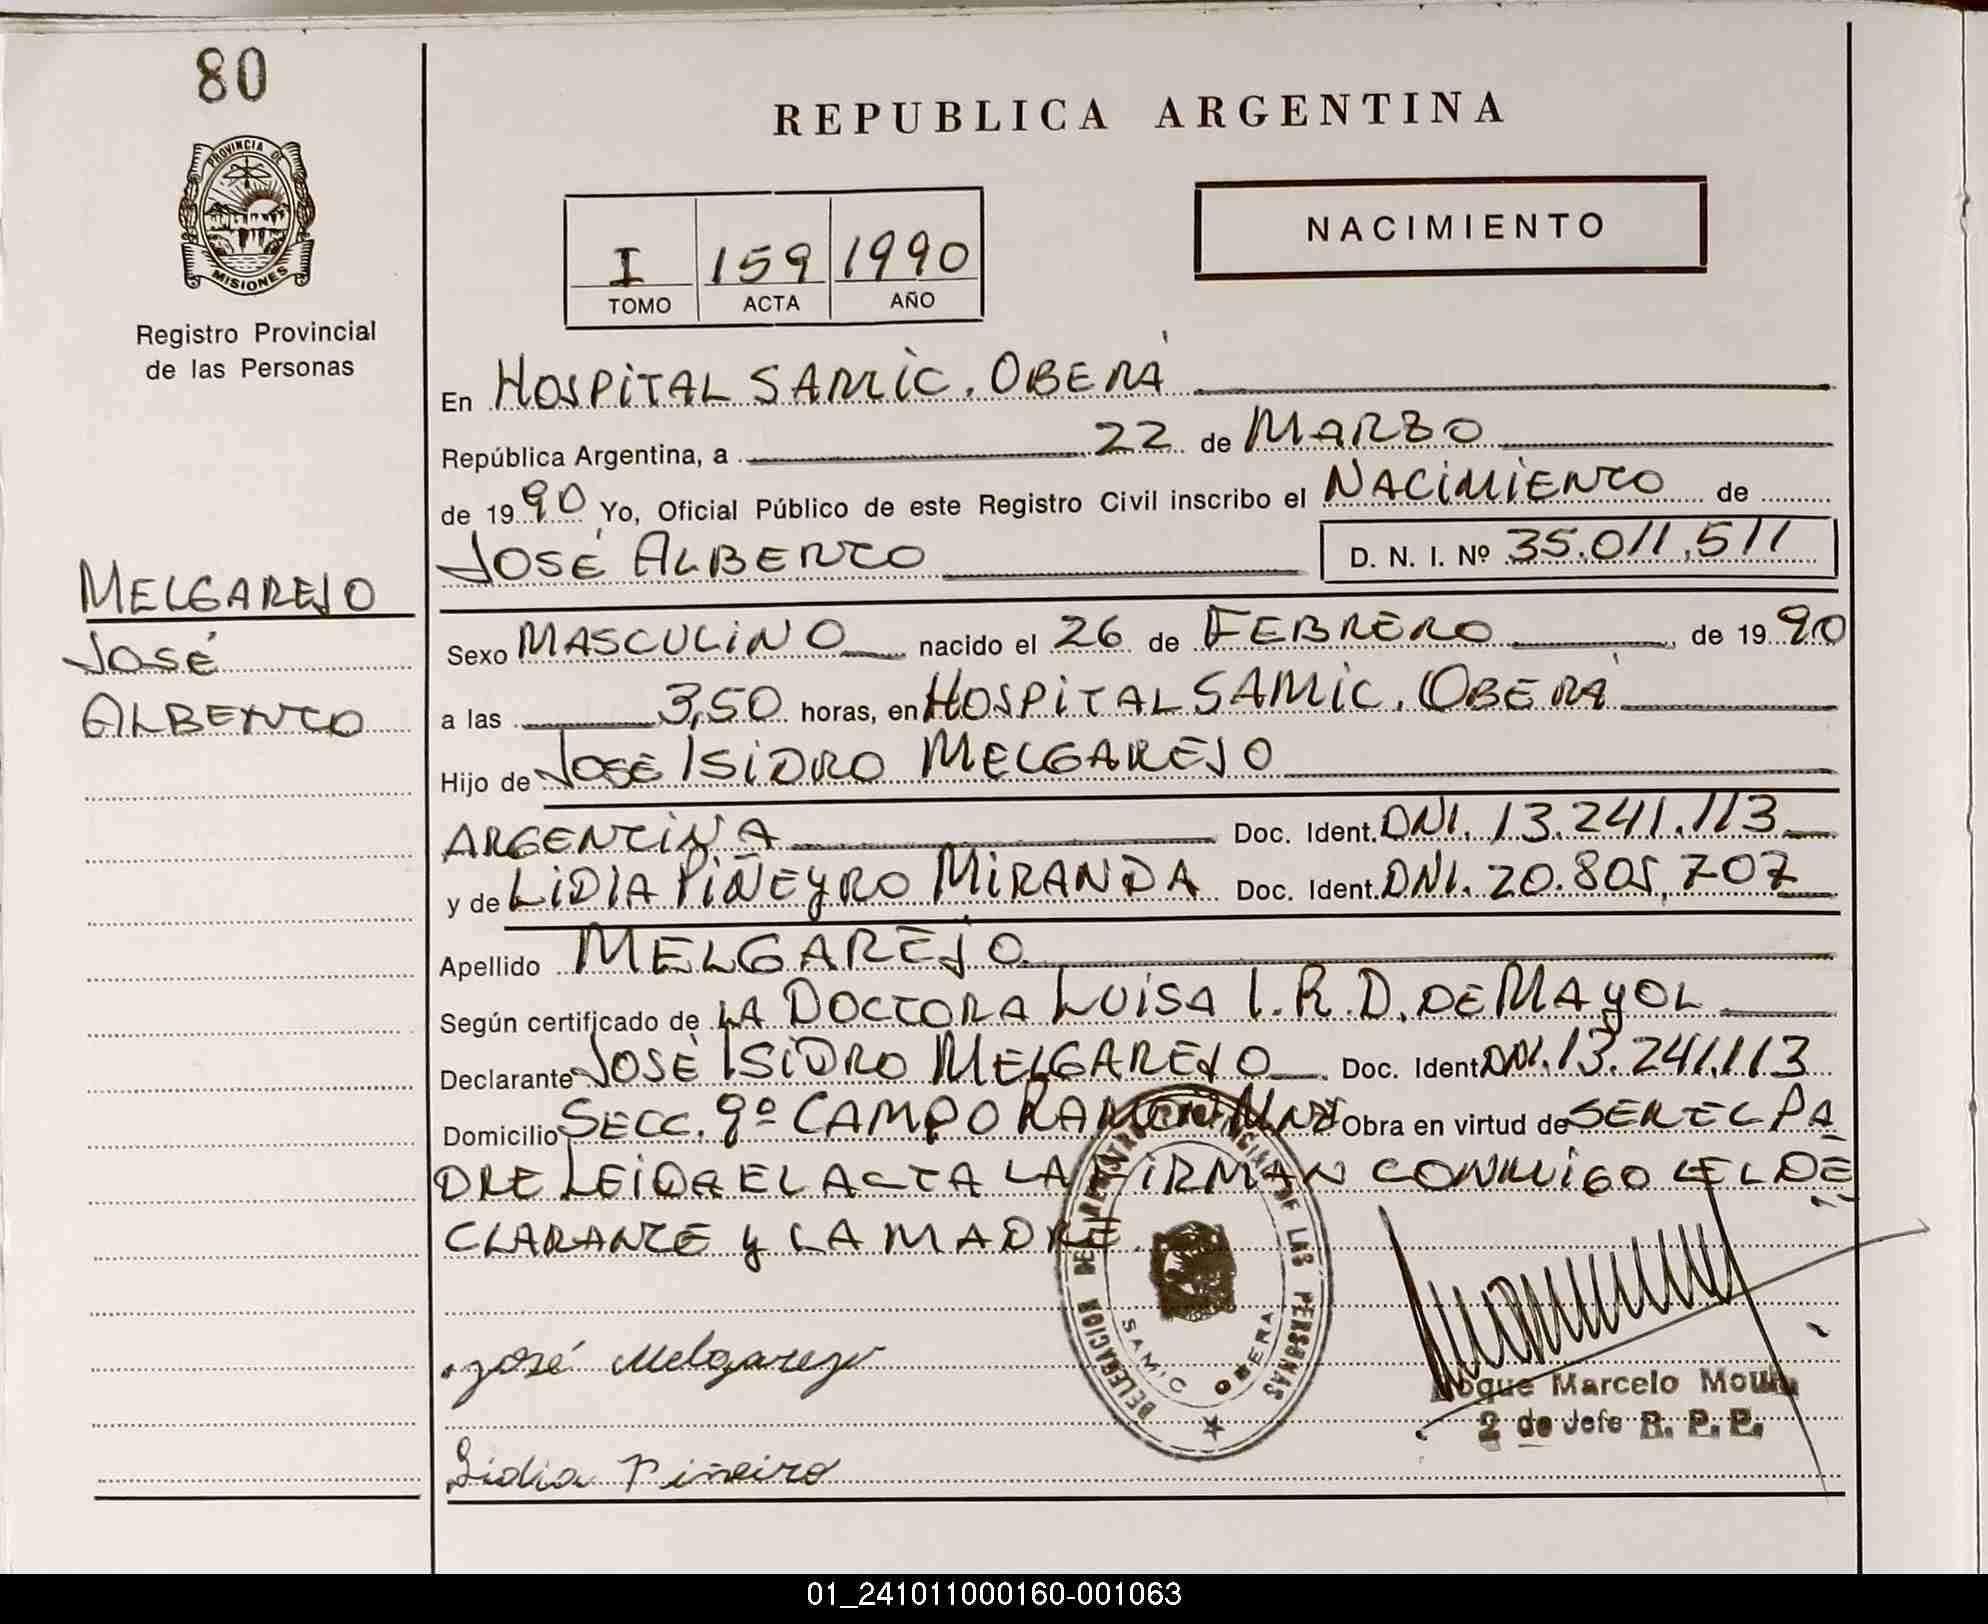 80
PROVINCIA DE
MISIONES
Registro Provincial
de las Personas
MELGAREJO
JOSÉ
ALBERTO
REPUBLICA ARGENTINA
I 159 1990
TOMO ACTA AÑO
NACIMIENTO
En HOSPITAL SAMIC. OBERÁ
República Argentina, a 22 de MARZO
de 1990 Yo, Oficial Público de este Registro Civil inscribo el NACIMIENTO de
JOSÉ ALBERTO D. N. I. Nº 35.011.511
Sexo MASCULINO nacido el 26 de FEBRERO de 1990
a las 3,50 horas, en HOSPITAL SAMIC. OBERÁ
Hijo de JOSÉ ISIDRO MELGAREJO
ARGENTINA Doc. Ident. DNI. 13.241.113
y de LIDIA PIÑEYRO MIRANDA Doc. Ident. DNI. 20.805.707
Apellido MELGAREJO
Según certificado de LA DOCTORA LUISA I. R. D. DE MAYOL
Declarante JOSÉ ISIDRO MELGAREJO Doc. Ident DNI. 13.241.113
Domicilio SECC. 9º CAMPO RAMON MNES Obra en virtud de SER EL PA
DRE LEIDA EL ACTA LA FIRMAN CONMIGO EL DE
CLARANTE y LA MADRE.
DELEGACION DE REGISTRO PROVINCIAL DE LAS PERSONAS
SAMIC OBERA
José Melgarejo
Lidia Piñeiro
Roque Marcelo
2 do Jefe R. P. P.
01_241011000160-001063